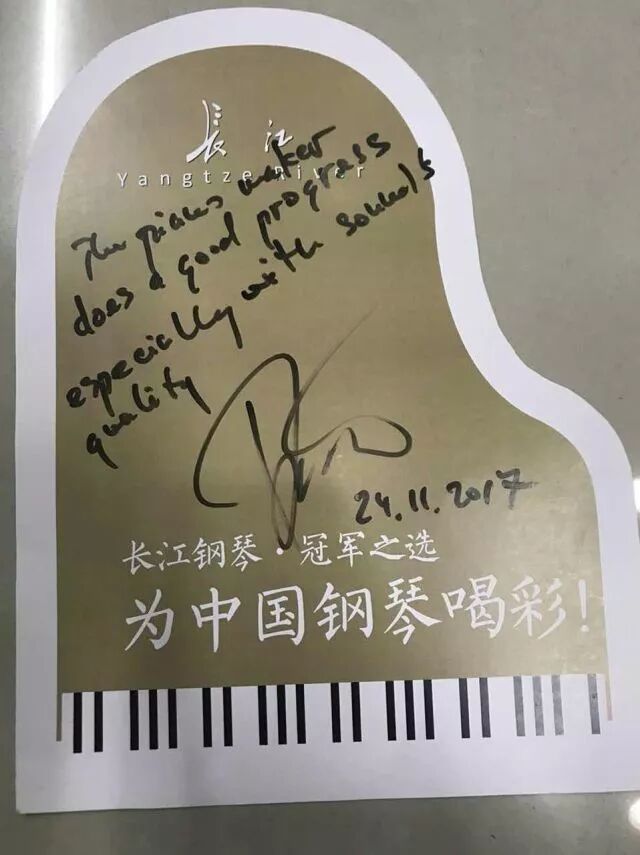 長江
Yangtze River
The pianos maker
does a good progress
especially with
quality
24.11.2017
长江钢琴·冠军之选
为中国钢琴喝彩!